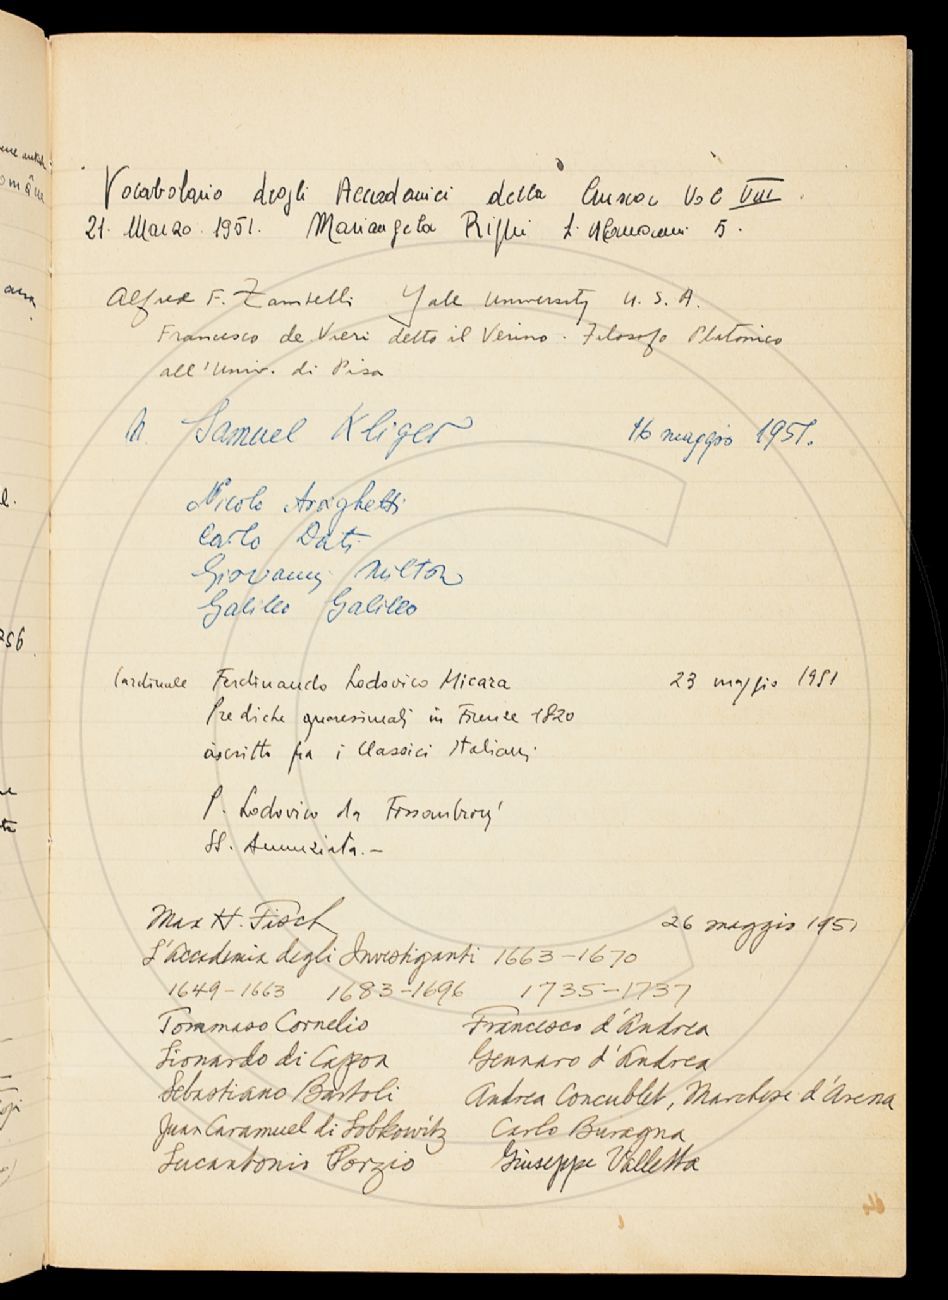 Vocabolario degli Accademici della Crusca Vol VIII
21. Marzo. 1951. Mariangela 5.
Alfred F. Yale University U. S. A.
Francesco de Vieri detto il Verino. Filosofo Platonico
all'Univ. di Pisa
Samuel Kliger 16 maggio 1951.
Nicolo Arrighetti
Carlo Dati
Giovanni Milton
Galileo Galileo
Cardinale Ferdinando Lodovico Micara 23 maggio 1951
Prediche quaresimali in Firenze 1820
ascritto fra i Classici Italiani
P. Lodovico da Fossombrony
SS. Annunziata.-
Max H. Fisch 26 maggio 1951
L'Accademia degli Investiganti 1663-1670
1649-1663 1683-1696 1735-1737
Tommaso Cornelio Francesco d'Andrea
Lionardo di Capoa Gennaro d'Andrea
Sebastiano Bartoli Andrea Concublet, Marchese d'Arena
Juan Caramuel di Lobkowitz Carlo Buragna
Lucantonio Porzio Giuseppe Valletta